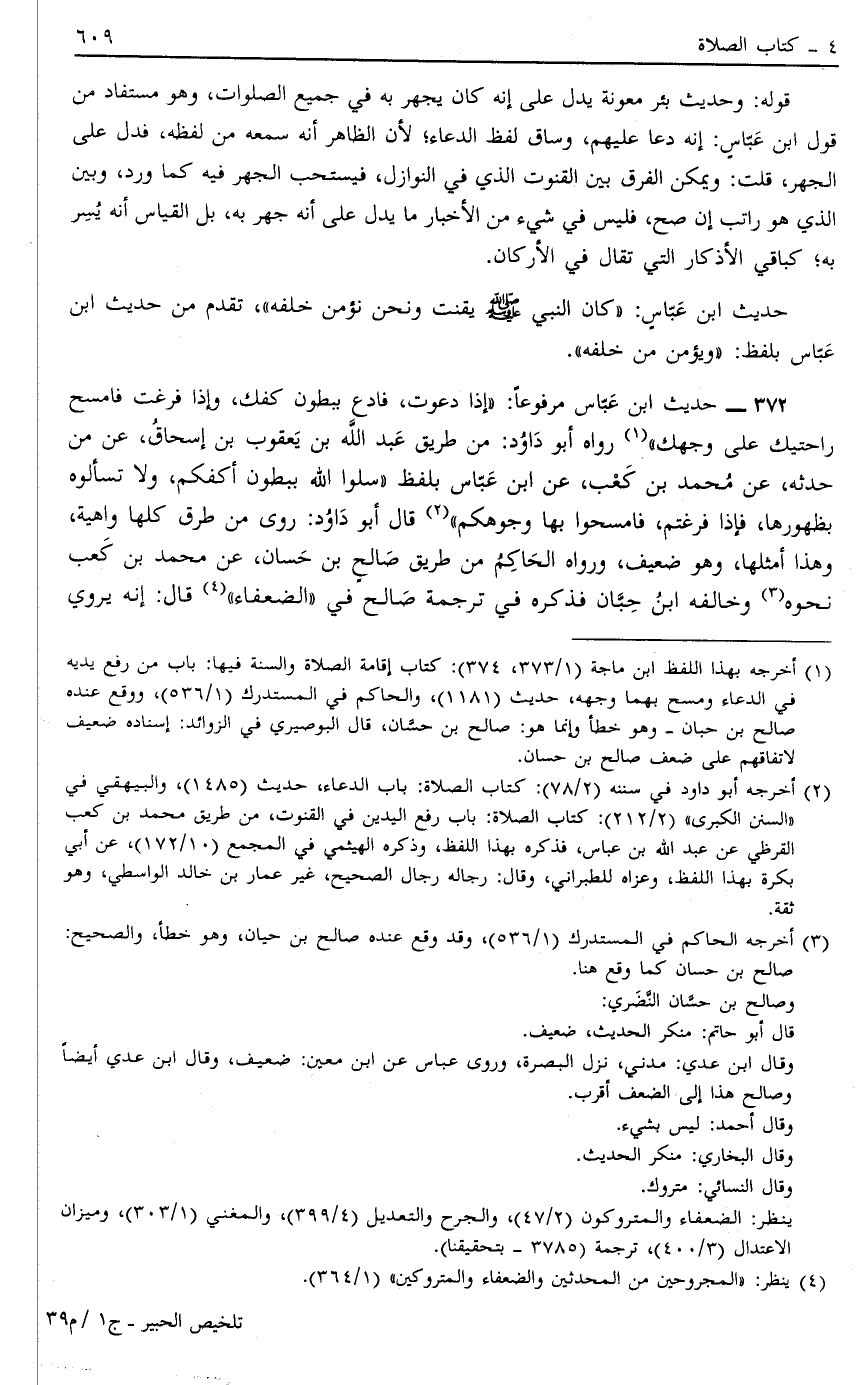 ٤ - كتاب الصلاة ٦٠٩
قوله: وحديث بئر معونة يدل على إنه كان يجهر به في جميع الصلوات، وهو مستفاد من
قول ابن عَبّاسٍ: إنه دعا عليهم، وساق لفظ الدعاء؛ لأن الظاهر أنه سمعه من لفظه، فدل على
الجهر، قلت: ويمكن الفرق بين القنوت الذي في النوازل، فيستحب الجهر فيه كما ورد، وبين
الذي هو راتب إن صح، فليس في شيء من الأخبار ما يدل على أنه جهر به، بل القياس أنه يُسِر
به؛ كباقي الأذكار التي تقال في الأركان.
حديث ابن عَبّاسٍ: «كان النبي ﷺ يقنت ونحن نؤمن خلفه»، تقدم من حديث ابن
عَبّاس بلفظ: «ويؤمن من خلفه».
٣٧٢ ـــ حديث ابن عَبّاس مرفوعاً: «إذا دعوت، فادع ببطون كفك، وإذا فرغت فامسح
راحتيك على وجهك»(١) رواه أبو دَاوُد: من طريق عَبد اللَّه بن يَعقوب بن إسحاقُ، عن من
حدثه، عن مُحمد بن كَعْب، عن ابن عَبّاس بلفظ «سلوا الله ببطون أكفكم، ولا تسألوه
بظهورها، فإذا فرغتم، فامسحوا بها وجوهكم»(٢) قال أبو دَاوُد: روى من طرق كلها واهية،
وهذا أمثلها، وهو ضعيف، ورواه الحَاكِمُ من طريق صَالحٍ بن حَسان، عن محمد بن كَعب
نحوه(٣) وخالفه ابنُ حِبَّان فذكره في ترجمة صَالح في «الضعفاء»(٤) قال: إنه يروي
(١) أخرجه بهذا اللفظ ابن ماجة (٣٧٣/١، ٣٧٤): كتاب إقامة الصلاة والسنة فيها: باب من رفع يديه
في الدعاء ومسح بهما وجهه، حديث (١١٨١)، والحاكم في المستدرك (٥٣٦/١)، ووقع عنده
صالح بن حبان - وهو خطأ وإنما هو: صالح بن حسَّان، قال البوصيري في الزوائد: إسناده ضعيف
لاتفاقهم على ضعف صالح بن حسان.
(٢) أخرجه أبو داود في سننه (٧٨/٢): كتاب الصلاة: باب الدعاء، حديث (١٤٨٥)، والبيهقي في
«السنن الكبرى» (٢١٢/٢): كتاب الصلاة: باب رفع اليدين في القنوت، من طريق محمد بن كعب
القرظي عن عبد الله بن عباس، فذكره بهذا اللفظ، وذكره الهيثمي في المجمع (١٧٢/١٠)، عن أبي
بكرة بهذا اللفظ، وعزاه للطبراني، وقال: رجاله رجال الصحيح، غير عمار بن خالد الواسطي، وهو
ثقة.
(٣) أخرجه الحاكم في المستدرك (٥٣٦/١)، وقد وقع عنده صالح بن حيان، وهو خطأ، والصحيح:
صالح بن حسان كما وقع هنا.
وصالح بن حسَّان النَّضَري:
قال أبو حاتم: منكر الحديث، ضعيف.
وقال ابن عدي: مدني، نزل البصرة، وروى عباس عن ابن معين: ضعيف، وقال ابن عدي أيضاً
وصالح هذا إلى الضعف أقرب.
وقال أحمد: ليس بشيء.
وقال البخاري: منكر الحديث.
وقال النسائي: متروك.
ينظر: الضعفاء والمتروكون (٤٧/٢)، والجرح والتعديل (٣٩٩/٤)، والمغني (٣٠٣/١)، وميزان
الاعتدال (٤٠٠/٣)، ترجمة (٣٧٨٥ - بتحقيقنا).
(٤) ينظر: «المجروحين من المحدثين والضعفاء والمتروكين» (٣٦٤/١).
تلخيص الحبير - ج١ / م٣٩